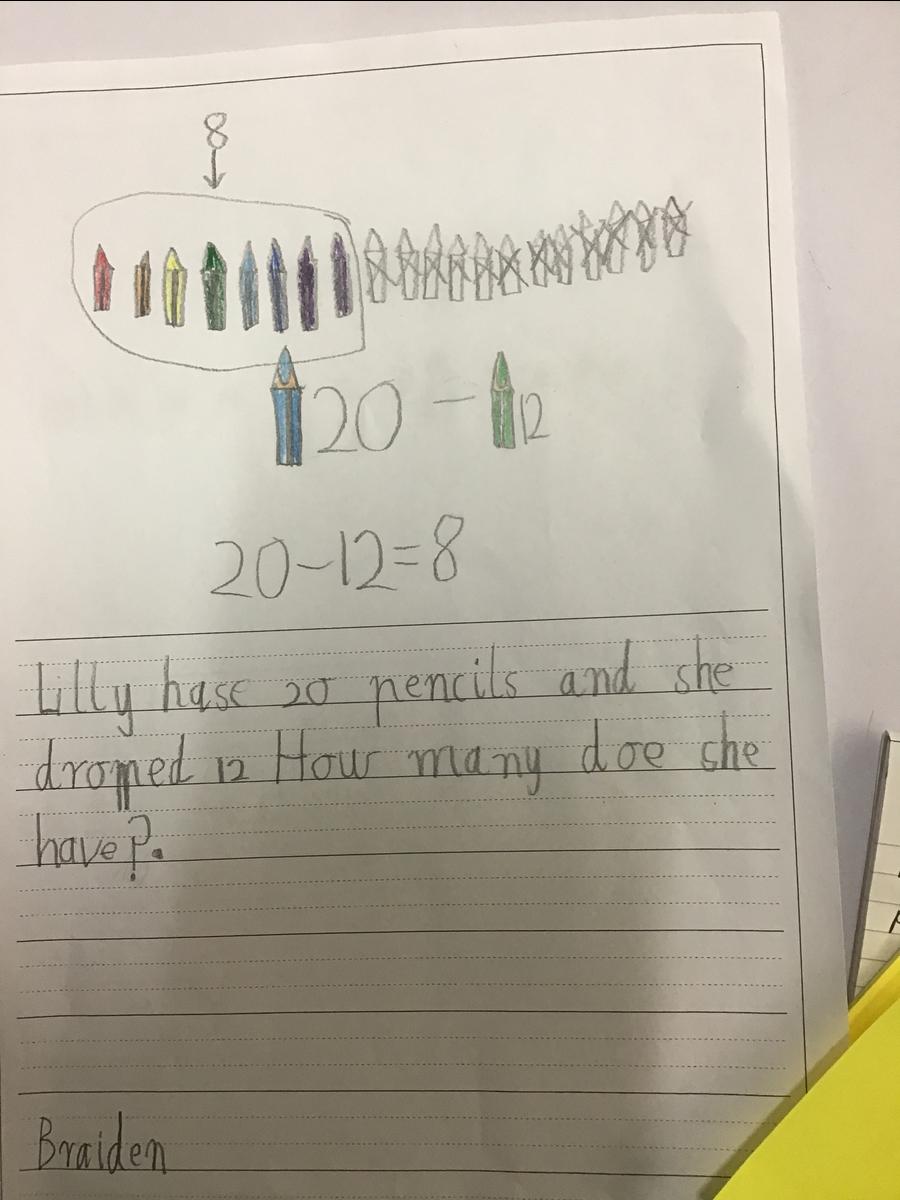 8
20 - 12
20-12=8
Lilly hase 20 pencils and she
dropped 12 How many doe she
have?.
Braiden